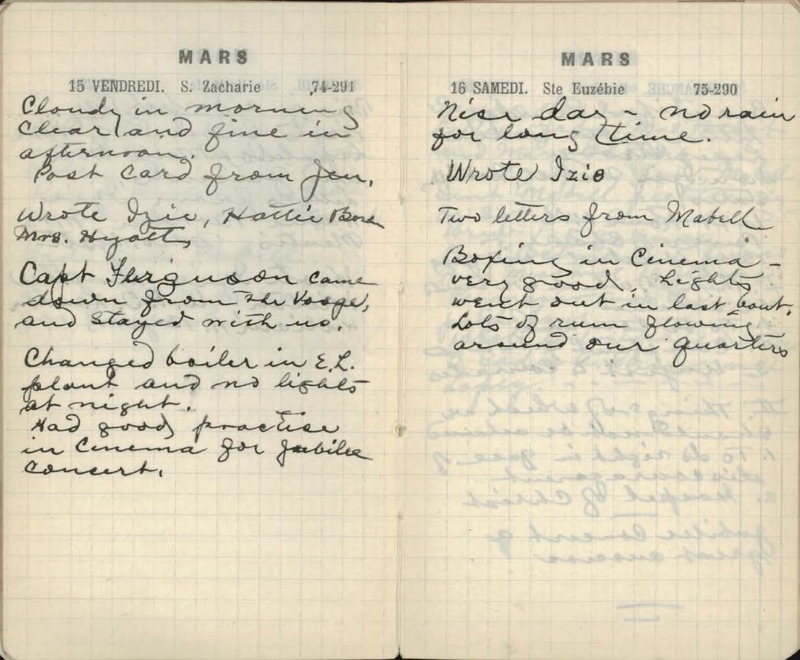 MARS
15 VENDREDI. S. Zacharie 74-291
Cloudy in morning
Clear and fine in
afternoon.
Post Card from Jen.
Wrote Izie, Hattie
Mrs. Hyatt,
Capt Ferguson came
down from the Vosge,
and stayed with us.
Changed boiler in E.L.
plant and no lights
at night.
Had good practise
in Cinema for Jubilee
Concert.
MARS
16 SAMEDI. Ste Euzébie 75-290
Nice day - no rain
for long time.
Wrote Izie
Two letters from Mabell
Boxing in Cinema -
very good. Lights
went out in last bout.
Lots of rum flowing
around our quarters